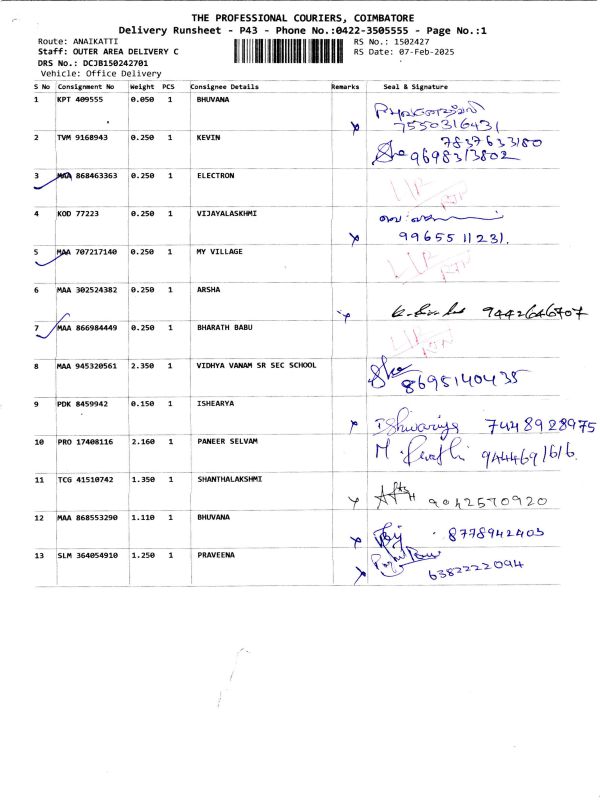 THE PROFESSIONAL COURIERS, COIMBATORE
Delivery Runsheet - P43 - Phone No.:0422-3505555 - Page No.:1
Route: ANAIKATTI RS No.: 1502427
Staff: OUTER AREA DELIVERY C RS Date: 07-Feb-2025
DRS No.: DCJB150242701
Vehicle: Office Delivery
S No Consignment No Weight PCS Consignee Details Remarks Seal & Signature
1 KPT 409555 0.050 1 BHUVANA
7550316431
2 TVM 9168943 0.250 1 KEVIN 7837633180
9698313802
3 MAA 868463363 0.250 1 ELECTRON
4 KOD 77223 0.250 1 VIJAYALASKHMI
9965511231.
5 MAA 707217140 0.250 1 MY VILLAGE
6 MAA 302524382 0.250 1 ARSHA 9442646707
7 MAA 866984449 0.250 1 BHARATH BABU
8 MAA 945320561 2.350 1 VIDHYA VANAM SR SEC SCHOOL
8695140435
9 PDK 8459942 0.150 1 ISHEARYA
Ishwariya 7448928975
10 PRO 17408116 2.160 1 PANEER SELVAM
M. 9444691616
11 TCG 41510742 1.350 1 SHANTHALAKSHMI
9042570920
12 MAA 868553290 1.110 1 BHUVANA
8778942403
13 SLM 364054910 1.250 1 PRAVEENA
6382222094